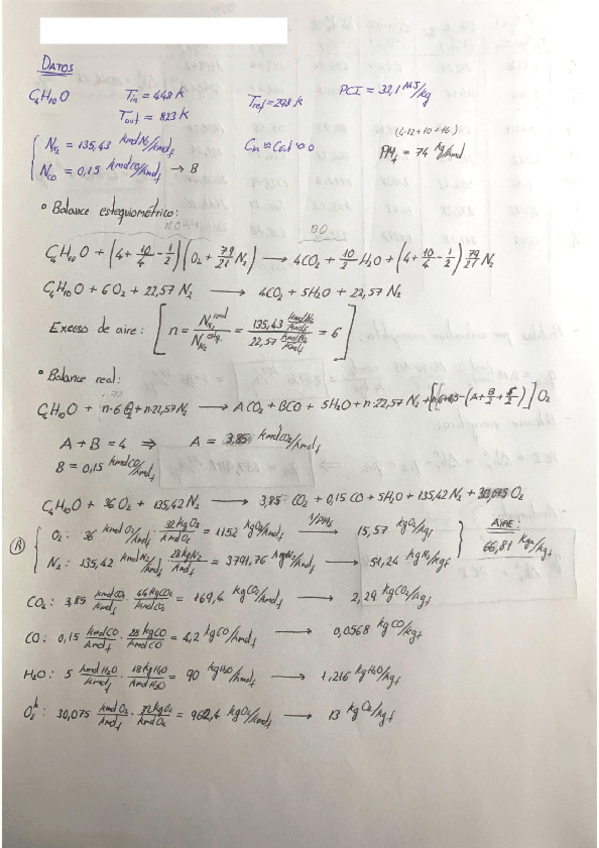 DATOS
C₄H₁₀O T_in = 448 K T_ref = 298 K PCI = 33,1 MJ/kg
T_out = 823 K
N_N₂ = 135,43 kmolN₂/kmol_f C_in ≈ C_out ≈ 0 (4·12+10+16)
N_CO = 0,15 kmolCO/kmol_f → B PM_f = 74 kg/kmol
° Balance estequiométrico:
C₄H₁₀O + (4 + 10/4 - 1/2)(O₂ + 79/21 N₂) → 4CO₂ + 10/2 H₂O + (4 + 10/4 - 1/2) 79/21 N₂
C₄H₁₀O + 6O₂ + 22,57 N₂ → 4CO₂ + 5H₂O + 22,57 N₂
Exceso de aire: [n = N_N₂^real / N_N₂^esteq. = 135,43 kmolN₂/kmol_f / 22,57 kmolN₂/kmol_f = 6]
° Balance real:
C₄H₁₀O + n·6 O₂ + n·22,57 N₂ → A CO₂ + B CO + 5H₂O + n·22,57 N₂ + [ - (A + B/2 + 5/2)] O₂
A + B = 4 ⇒ A = 3,85 kmolCO₂/kmol_f
B = 0,15 kmolCO/kmol_f
C₄H₁₀O + 36 O₂ + 135,42 N₂ → 3,85 CO₂ + 0,15 CO + 5H₂O + 135,42 N₂ + 30,075 O₂
(R) O₂: 36 kmolO₂/kmol_f · 32 kgO₂/kmolO₂ = 1152 kgO₂/kmol_f —1/PM_f→ 15,57 kgO₂/kg_f AIRE:
N₂: 135,42 kmolN₂/kmol_f · 28 kgN₂/kmolN₂ = 3791,76 kgN₂/kmol_f → 51,24 kgN₂/kg_f 66,81 kg_a/kg_f
CO₂: 3,85 kmolCO₂/kmol_f · 44 kgCO₂/kmolCO₂ = 169,4 kgCO₂/kmol_f → 2,29 kgCO₂/kg_f
CO: 0,15 kmolCO/kmol_f · 28 kgCO/kmolCO = 4,2 kgCO/kmol_f → 0,0568 kgCO/kg_f
H₂O: 5 kmolH₂O/kmol_f · 18 kgH₂O/kmolH₂O = 90 kgH₂O/kmol_f → 1,216 kgH₂O/kg_f
O₂^h: 30,075 kmolO₂/kmol_f · 32 kgO₂/kmolO₂ = 962,4 kgO₂/kmol_f → 13 kgO₂/kg_f